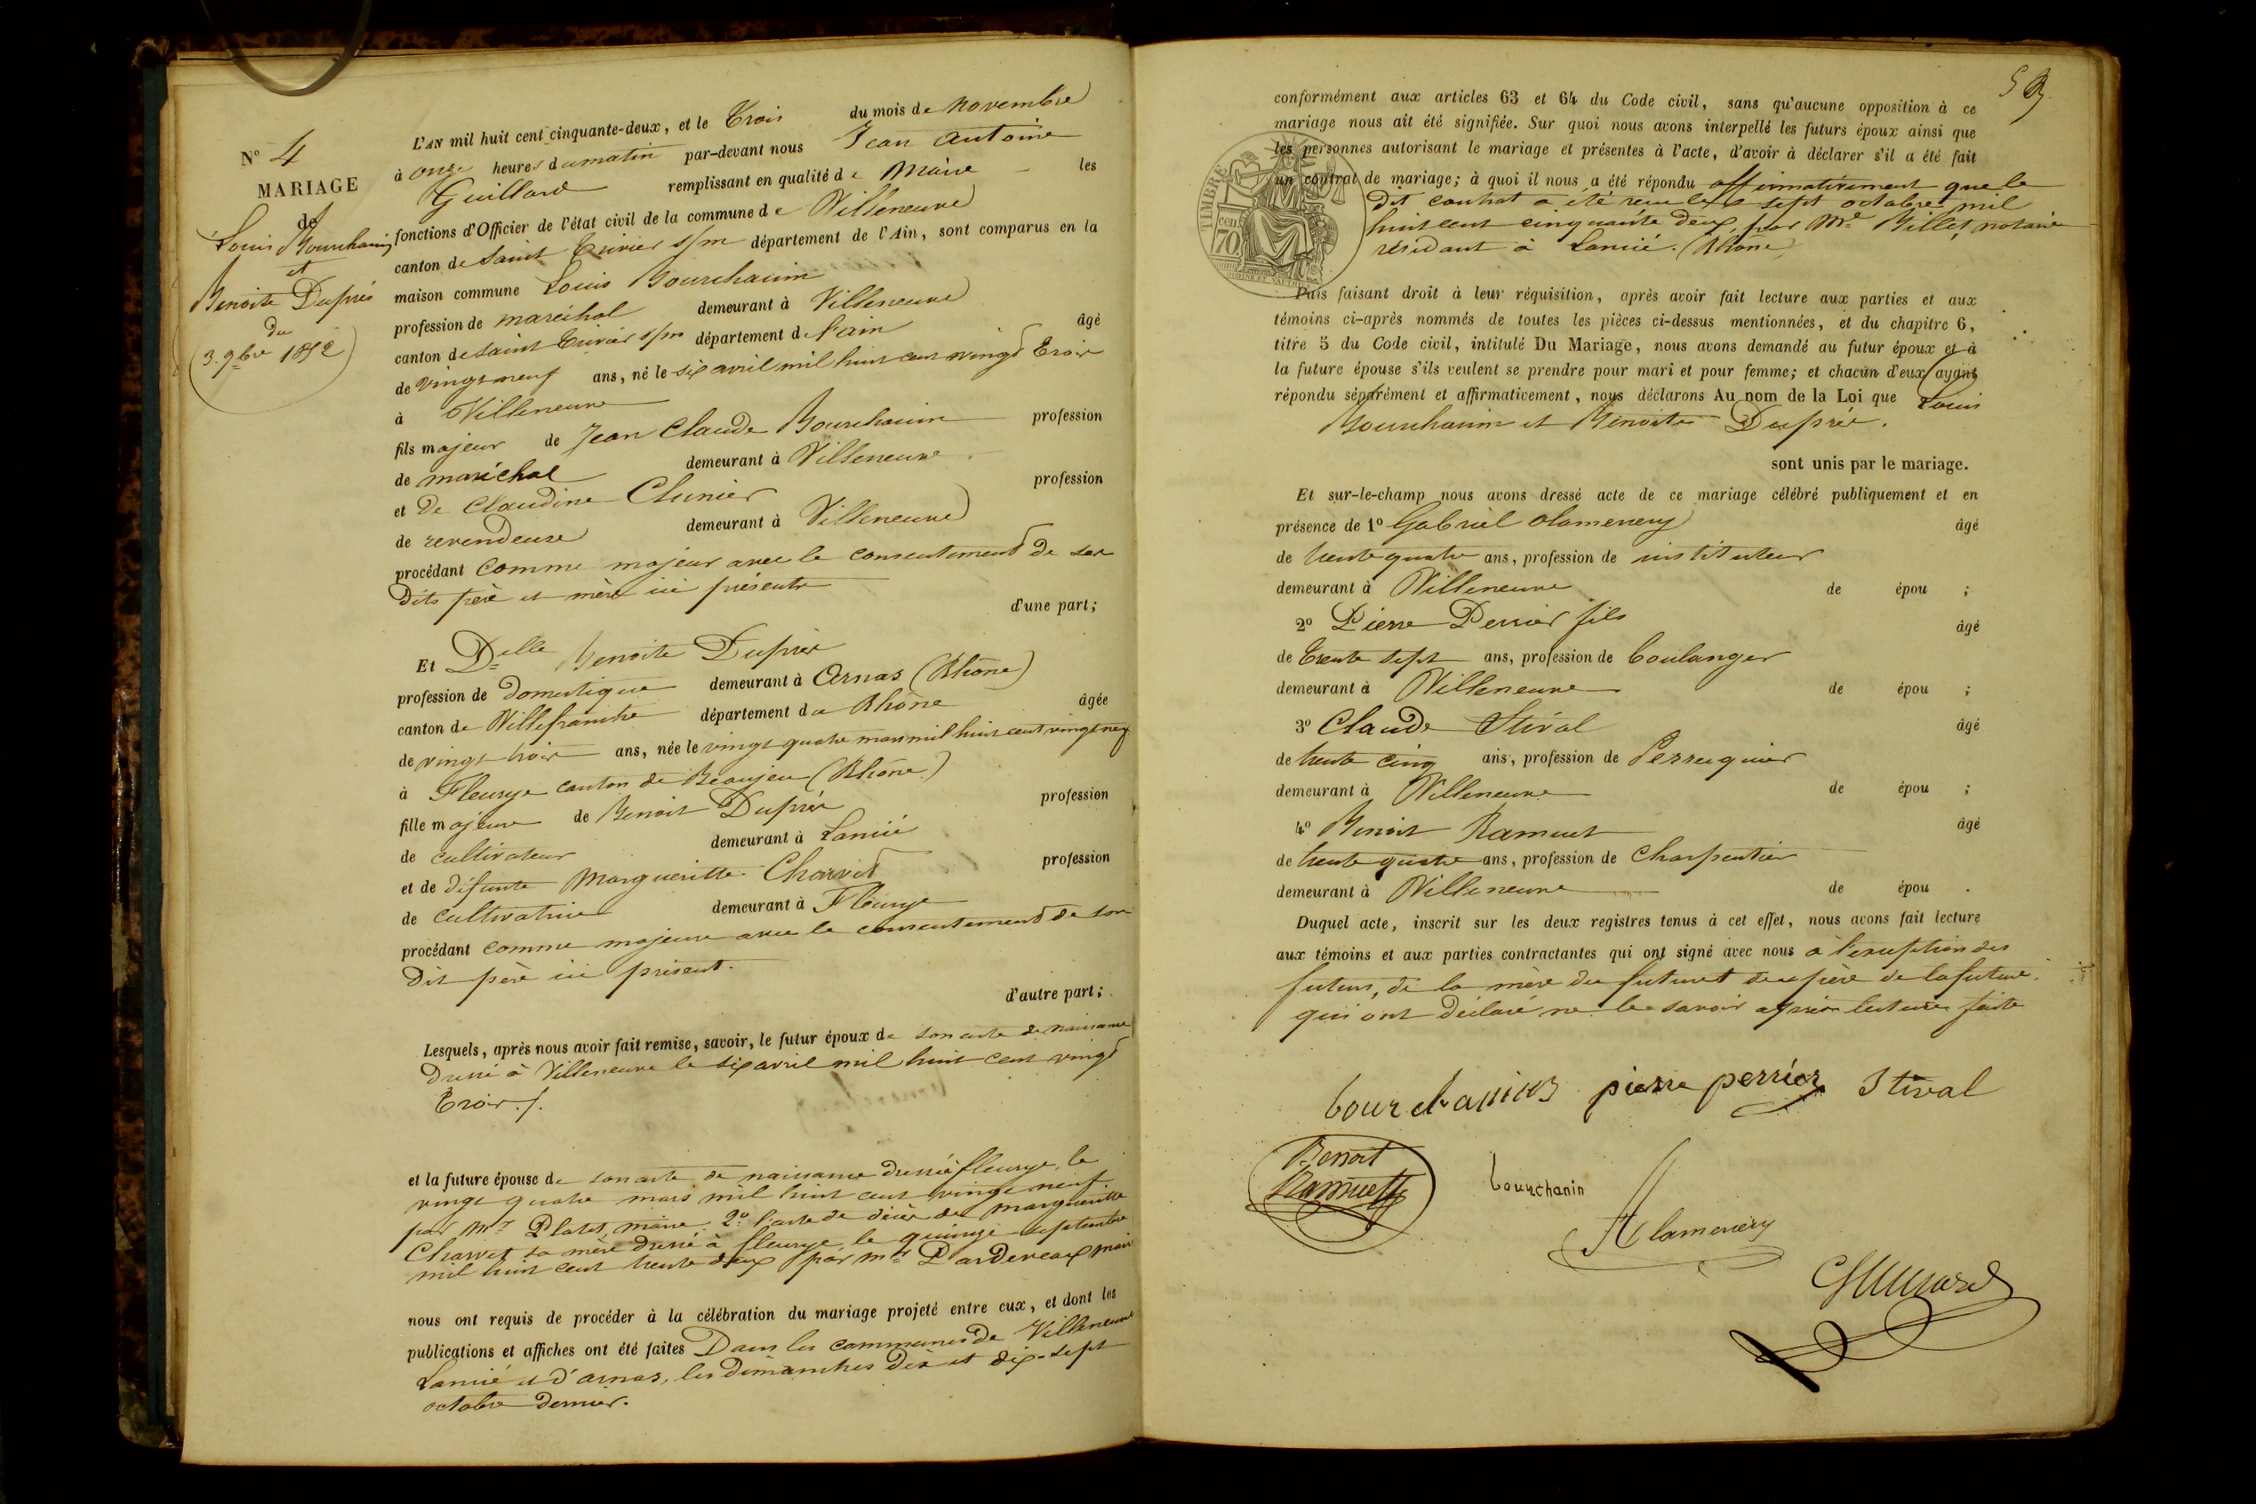 Nº 4
MARIAGE
de
Louis Bourchanin
et
Benoite Duprés
du
3. 9bre 1852
L'AN mil huit cent cinquante-deux, et le Trois du mois de novembre
à onze heures du matin par-devant nous Jean Antoine
Guillard remplissant en qualité de Maire les
fonctions d'Officier de l'état civil de la commune de Villeneuve
canton de Saint Trivier s/m département de l'Ain, sont comparus en la
maison commune Louis Bourchanin
profession de maréchal demeurant à Villeneuve
canton de Saint Trivier s/m département de l'ain âgé
de vingt neuf ans, né le six avril mil huit cent vingt Trois
à Villeneuve
fils majeur de Jean Claude Bourchanin profession
de maréchal demeurant à Villeneuve
et de Claudine Clunier profession
de revendeuse demeurant à Villeneuve
procédant comme majeur avec le consentement de ses
dits père et mère ici présents
d'une part;
Et Delle Benoite Duprés
profession de domestique demeurant à Arnas (Rhône)
canton de Villefranche département du Rhône âgée
de vingt trois ans, née le vingt quatre mars mil huit cent vingt neuf
à Fleurye canton de Beaujeu (Rhône)
fille majeure de Benoit Duprés profession
de cultivateur demeurant à Lancié
et de défunte Margueritte Charvet profession
de cultivatrice demeurant à Fleurye
procédant comme majeure avec le consentement de son
dit père ici présent.
d'autre part;
Lesquels, après nous avoir fait remise, savoir, le futur époux de son acte de naissance
dressé à Villeneuve le six avril mil huit cent vingt
Trois./.
et la future épouse de son acte de naissance dressé à fleurye, le
vingt quatre mars mil huit cent vingt neuf
par Mr Platet, maire. 2º l'acte de décès de Margueritte
Charvet sa mère dressé à fleurye le quinze septembre
mil huit cent trente deux par Mr Dardereaux maire
nous ont requis de procéder à la célébration du mariage projeté entre eux, et dont les
publications et affiches ont été faites Dans les communes de Villeneuve
Lancié et d'arnas, les dimanches dix et dix-sept
octobre dernier.
conformément aux articles 63 et 64 du Code civil, sans qu'aucune opposition à ce
mariage nous ait été signifiée. Sur quoi nous avons interpellé les futurs époux ainsi que
les personnes autorisant le mariage et présentes à l'acte, d'avoir à déclarer s'il a été fait
un contrat de mariage; à quoi il nous a été répondu affirmativement que le
dit contrat a été reçu le sept octobre mil
huit cent cinquante deux, par Me Billet, notaire
résidant à Lancié. (Rhône)
TIMBRE
70
Puis faisant droit à leur réquisition, après avoir fait lecture aux parties et aux
témoins ci-après nommés de toutes les pièces ci-dessus mentionnées, et du chapitre 6,
titre 5 du Code civil, intitulé Du Mariage, nous avons demandé au futur époux et à
la future épouse s'ils veulent se prendre pour mari et pour femme; et chacun d'eux ayant
répondu séparément et affirmativement, nous déclarons Au nom de la Loi que Louis
Bourchanin et Benoite Duprés.
sont unis par le mariage.
Et sur-le-champ nous avons dressé acte de ce mariage célébré publiquement et en
présence de 1º Gabriel Alamenery âgé
de trente quatre ans, profession de instituteur
demeurant à Villeneuve de épou ;
2º Pierre Perrier fils âgé
de trente sept ans, profession de boulanger
demeurant à Villeneuve de épou ;
3º Claude Stival âgé
de trente cinq ans, profession de Perruquier
demeurant à Villeneuve de épou ;
4º Benoit Ramuet âgé
de trente quatre ans, profession de Charpentier
demeurant à Villeneuve de épou .
Duquel acte, inscrit sur les deux registres tenus à cet effet, nous avons fait lecture
aux témoins et aux parties contractantes qui ont signé avec nous à l'exception des
futurs, de la mère du futur et du père de la future
qui ont déclaré ne le savoir après lecture faite
bourchanins pierre perrier Stival
Benoit
Ramuet
bourchanin
Alamenery
Guillard